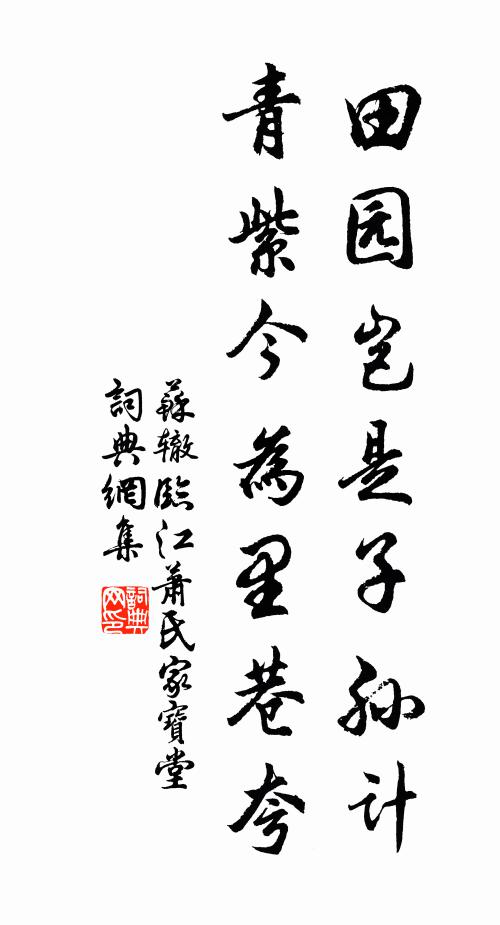 田园岂是子孙计
青紫今為里巷夸
蘇辙臨江萧氏家寶堂
詞典網集
詞典网印